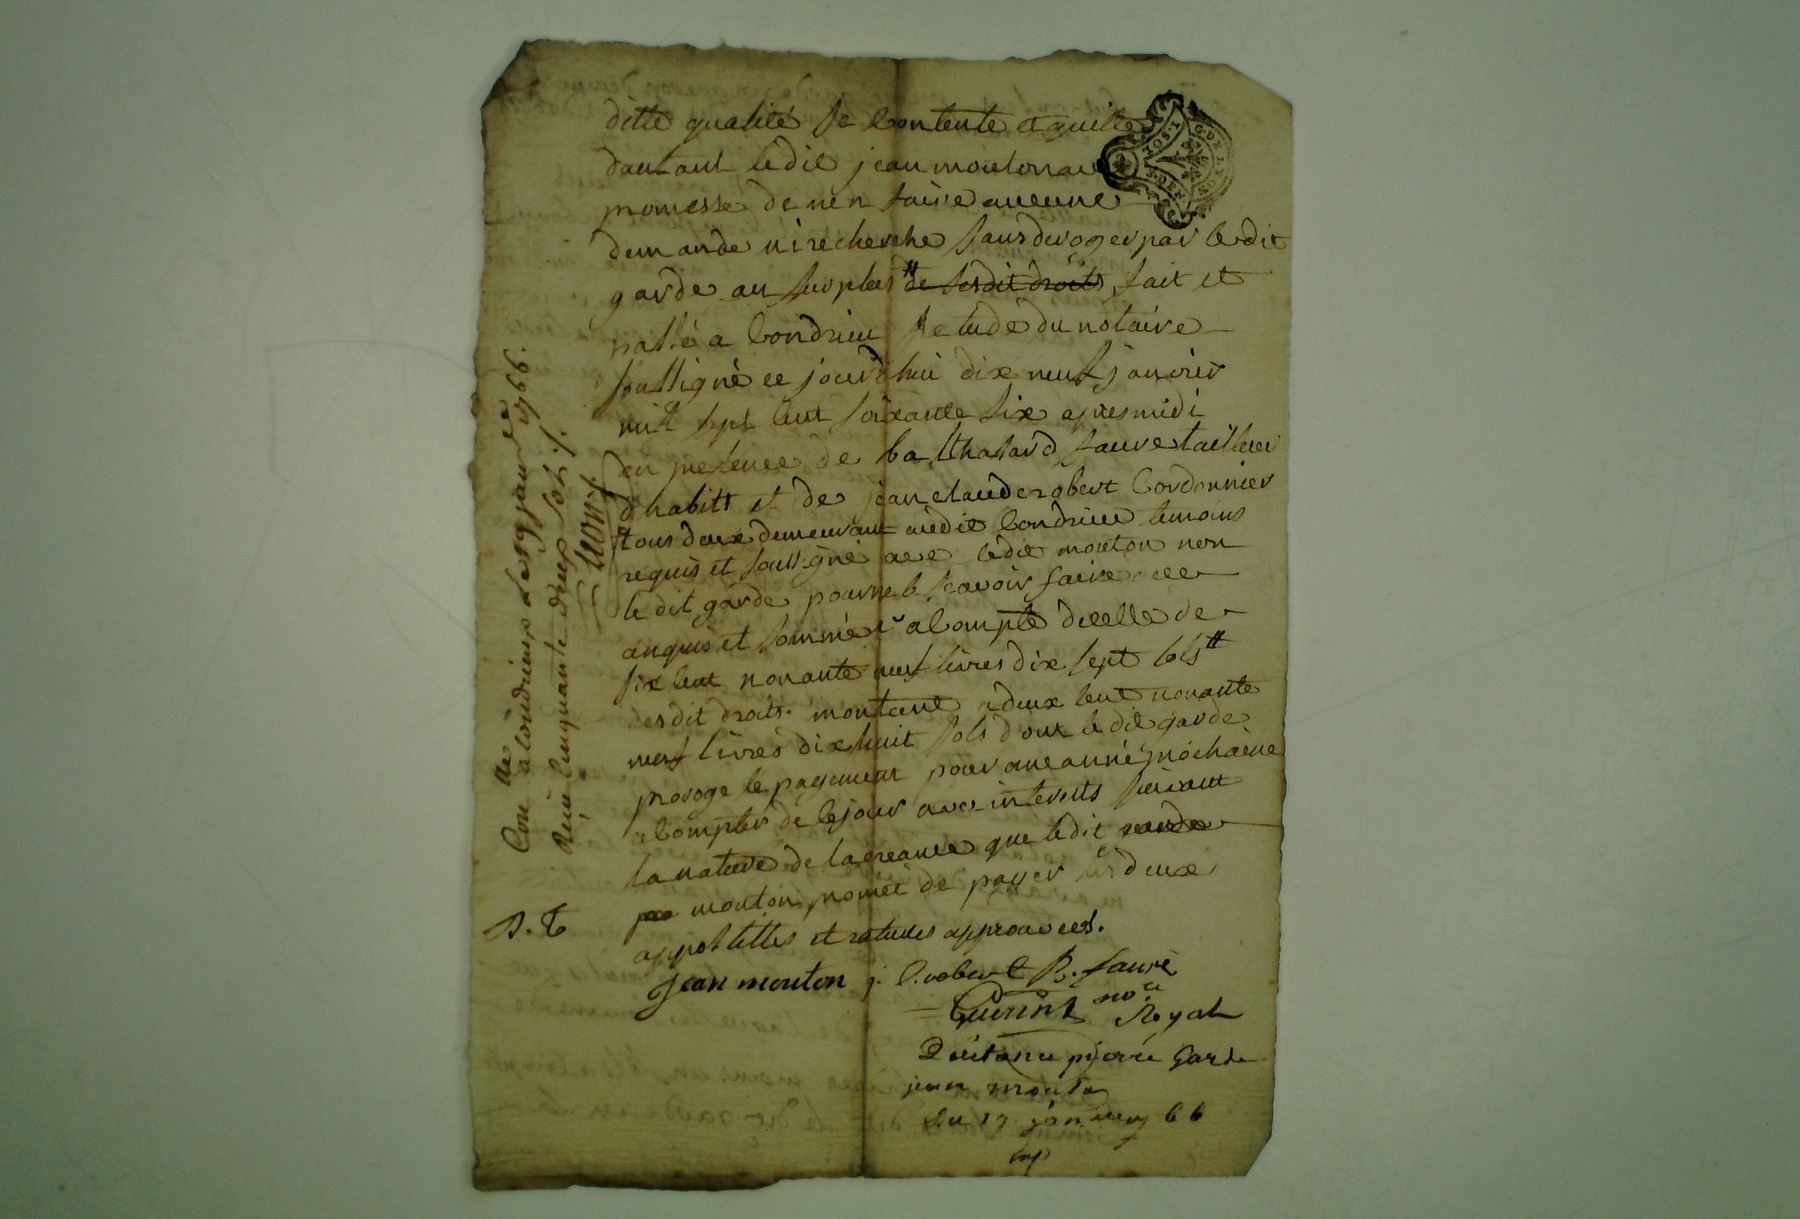 ditte qualité se Contente et quitte
dautant ledit jean mouton avec
promesse de nen faire aucune
demande ni recherche sans deroger par ledit
garde au surplus # de sesdit droits fait et
passé a Condrieu Etude du notaire
soussigné ce jourdhui dix neuf janvier
mil sept Cent soixante six apres midi
en presence de balthasard faure tailleur
dhabitt et de jean claude robert Cordonnier
tous deux demeurant audit Condrieu temoins
requis et soussigné avec ledit mouton non
le dit garde pour ne le scavoir faire de ce
enquis et sommé a Compte dicelle de
six Cent nonante neuf livres dix sept sols #
desdit droits montant a deux Cent nonante
neuf livres dix huit sols dont le dit garde
proroge le payement pour une anné prochaine
a Compter de Cejour avec interests suivant
la nature de la creance que ledit garde
mouton promet de payer les deux
appostilles et ratures approuvees.
jean mouton j. C. robert B. faure
Guerin no.re Royal
Quitance pierre Garde
jean mouton
du 19 janvier 66
Con.lle a Condrieux le 19 janv.er 1766.
Reçu Cinquante deux sols